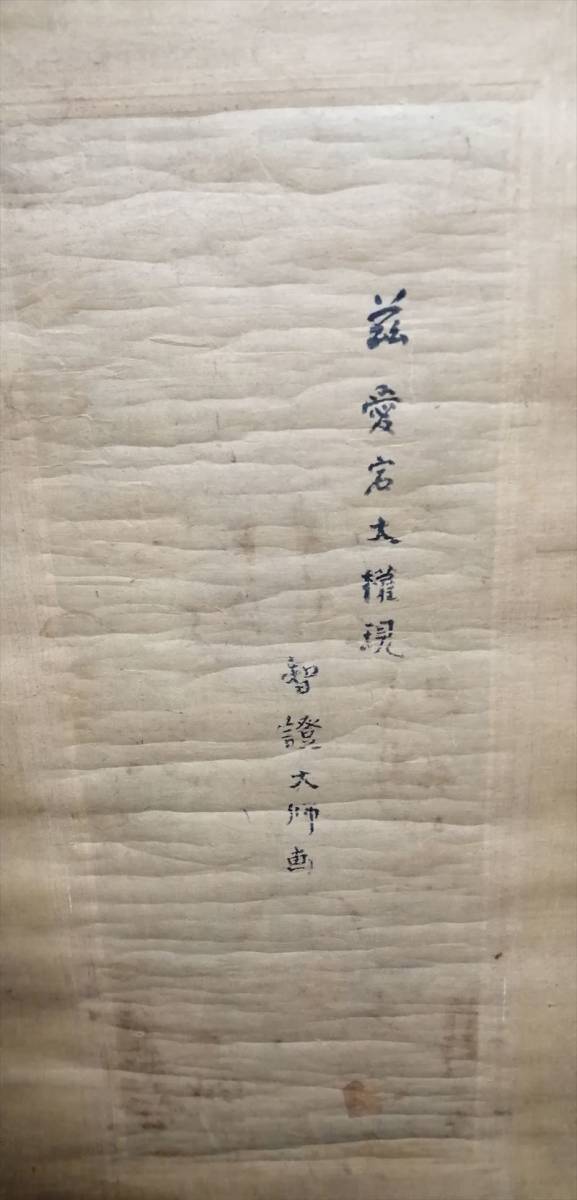 茲愛宕大權現
智證大師画